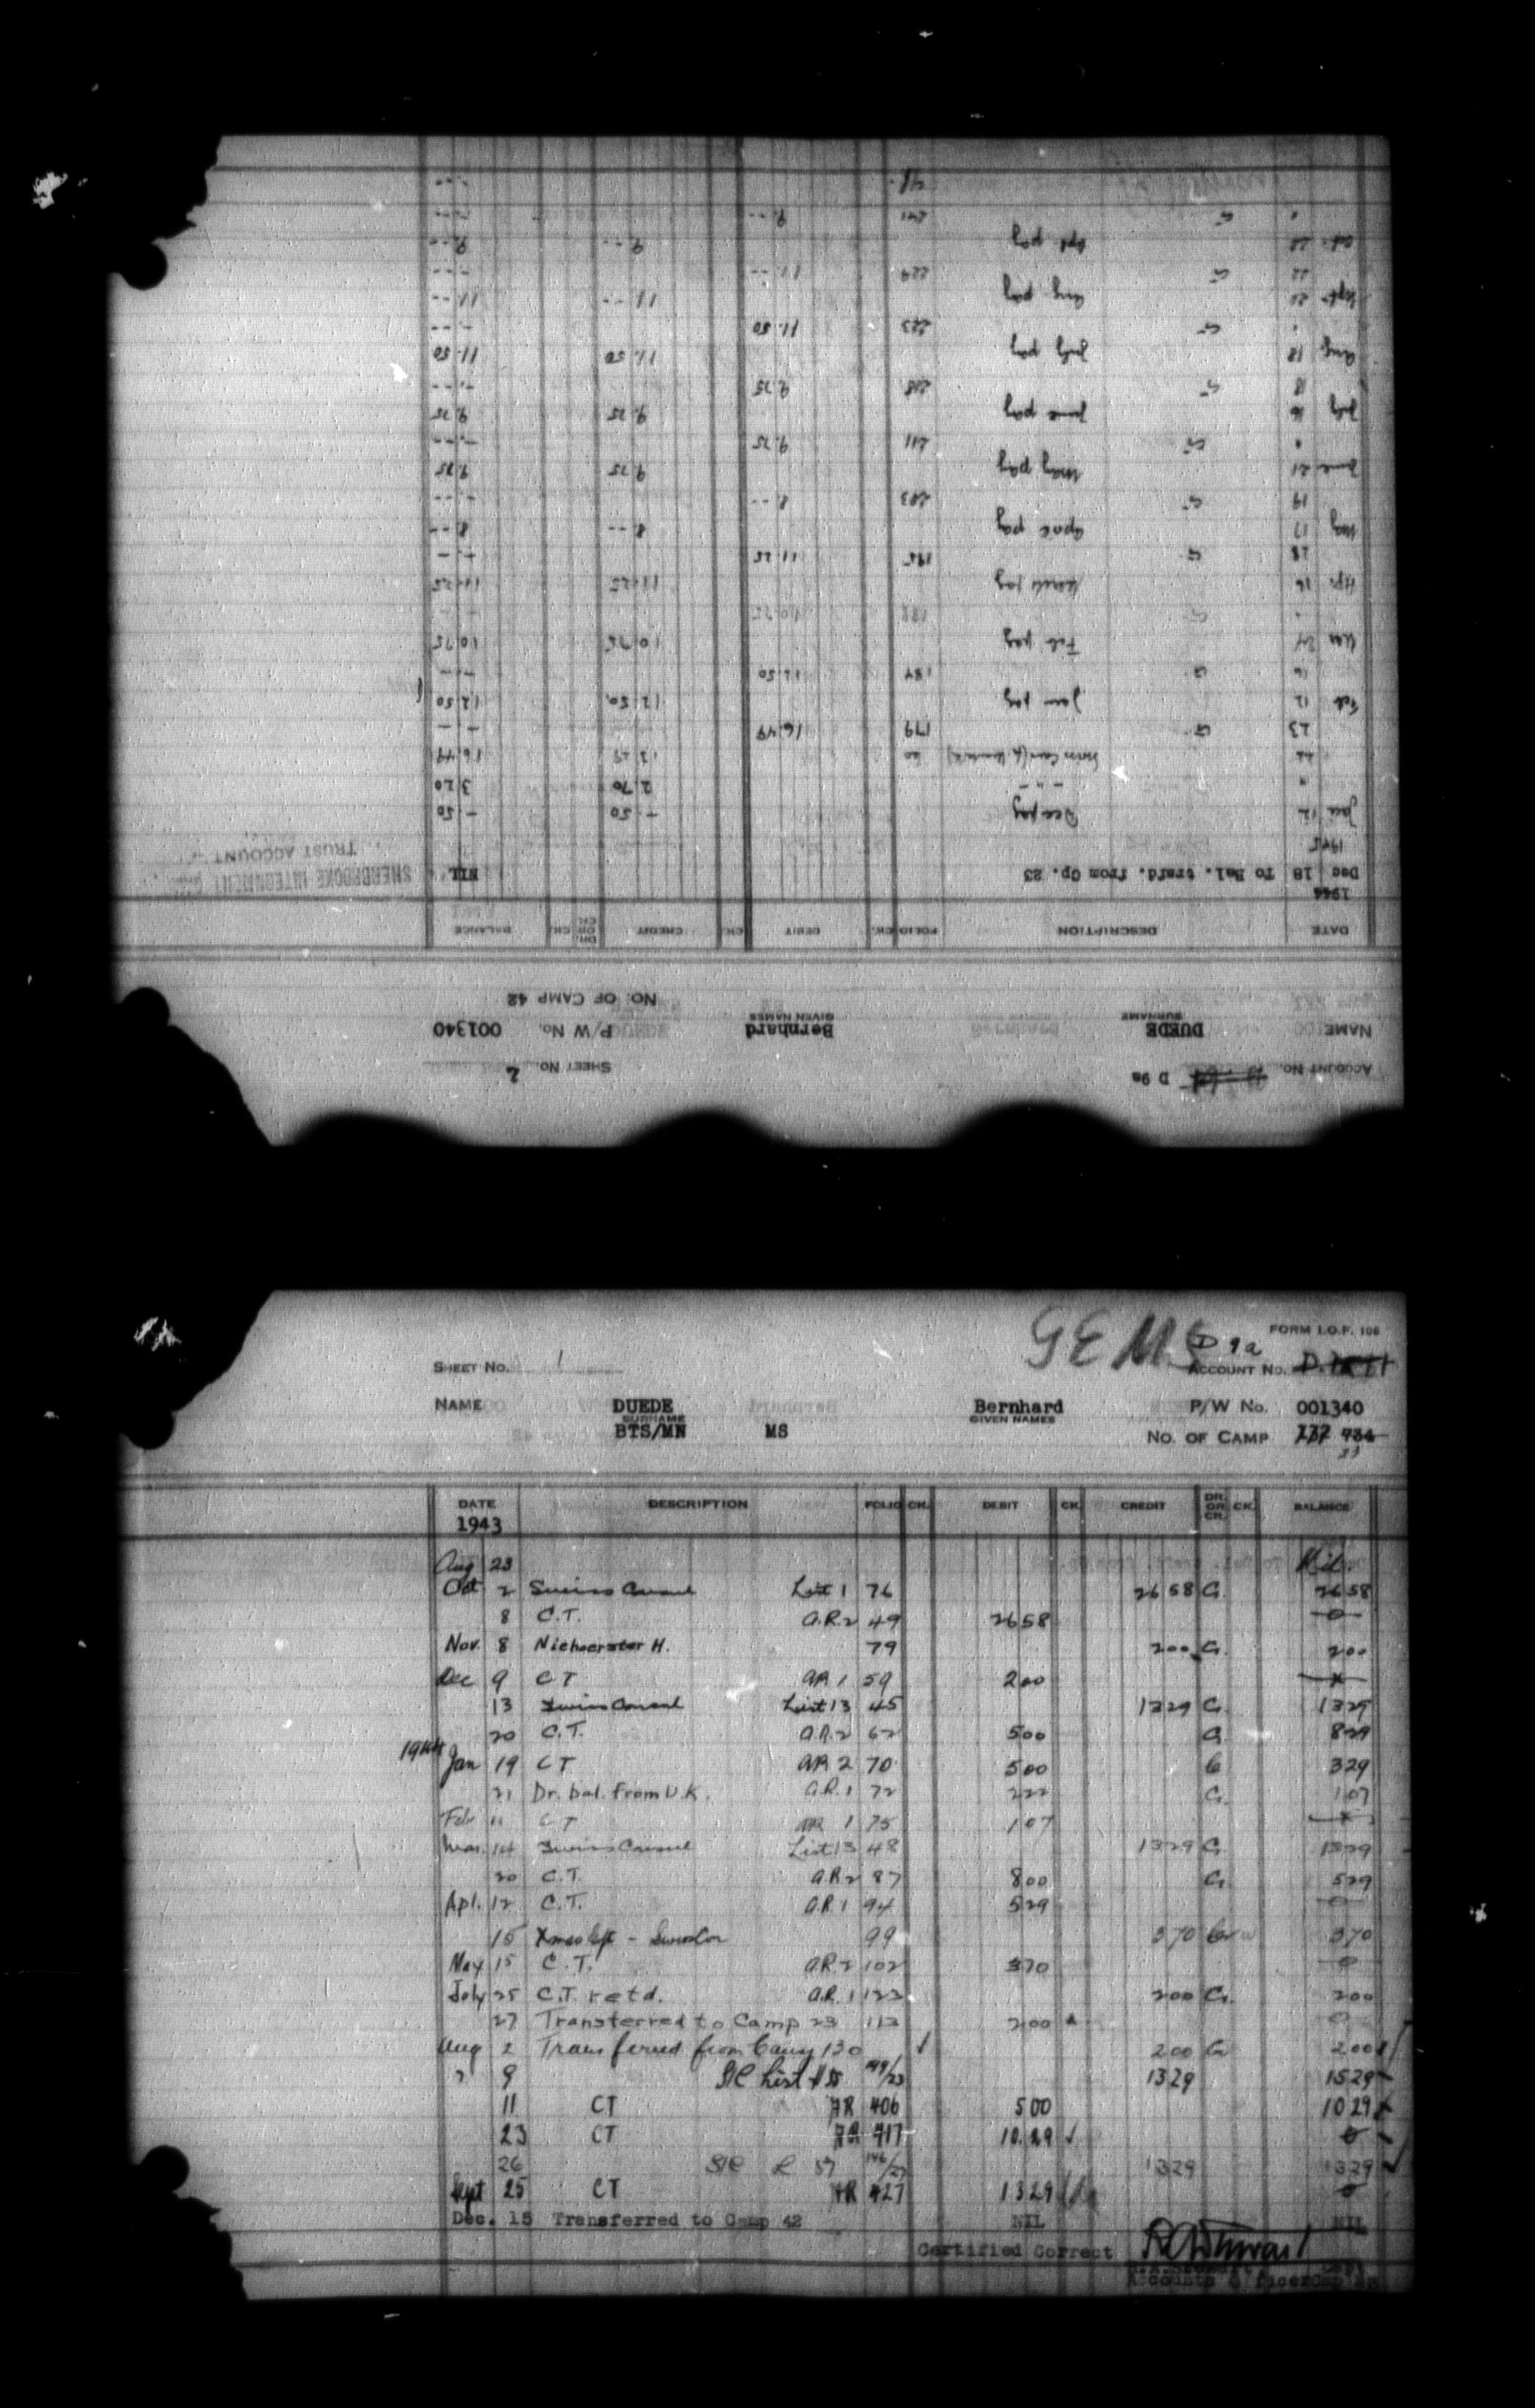 ACCOUNT NO. D 9a SHEET NO. 2
NAME DUEDE Bernhard P/W No. 001340
SURNAME GIVEN NAMES
NO. OF CAMP 42
DATE DESCRIPTION FOLIO CK. DEBIT CK. CREDIT DR. OR CR. CK. BALANCE
1944
Dec 18 To Bal. trsfd. from Cp. 23 NIL
SHERBROOKE INTERNMENT
TRUST ACCOUNT
1945
Jan 12 Dec pay - 50 - 50
" - " - 2 70 3 20
22 60 13 29 16 49
23 G 179 16 49 - -
Feb 12 Jan pay 12 50 12 50
16 G 184 12 50 - -
Mar 24 Feb pay 10 75 10 75
" G 10 75 - -
Apr 16 March pay 11 25 11 25
28 G 195 11 25 - -
May 17 April pay 8 -- 8 --
19 G 203 8 -- - --
June 21 May pay 9 75 9 75
" G 211 9 75 - --
July 16 June pay 9 75 9 75
18 G 218 9 75 - --
Aug 18 July pay 11 50 11 50
" G 223 11 50 - --
Sept 20 Aug pay 11 -- 11 --
22 G 229 11 -- - --
Oct 20 Sept pay 9 -- 9 --
" G 241 9 -- - --
GEMS
FORM I.O.F. 106
D 9a
SHEET No. 1 ACCOUNT No.
NAME DUEDE Bernhard P/W No. 001340
SURNAME GIVEN NAMES
BTS/MN MS No. OF CAMP
23
DATE DESCRIPTION FOLIO CK. DEBIT CK. CREDIT DR. OR CR. CK. BALANCE
1943
Aug 23 Nil.
Oct 2 Swiss Consul List 1 76 26 58 G. 26 58
8 C.T. A.R.2 49 26 58 0
Nov. 8 H. 79 2 00 G. 2 00
Dec 9 CT AR 1 59 2 00
13 Swiss Consul List 13 45 13 29 G 13 29
20 C.T. A.R.2 62 5 00 G 8 29
1944
Jan 19 CT AR 2 70 5 00 G 3 29
21 Dr. bal. from U.K. A.R.1 72 2 22 G. 1 07
Feb 11 CT AR 1 75 1 07
Mar. 14 Swiss Consul List 13 48 13 29 G 13 29
20 C.T. A.R.2 87 8 00 G 5 29
Apl. 12 C.T. A.R.1 94 5 29 0
15 Xmas Gift - Swiss Con 99 3 70 3 70
May 15 C.T. A.R.2 102 3 70 0
July 25 C.T. retd. A.R.1 123 2 00 G. 2 00
27 Transferred to Camp 23 113 2 00 0
Aug 2 Transferred from Camp 130 2 00 G 2 00
" 9 List 13 29 15 29
11 CT AR 406 5 00 10 29
23 CT AR 417 10.29 0
26 13 29 13 29
Sept 25 CT AR 427 13 29 0
Dec. 15 Transferred to Camp 42 NIL NIL
Certified Correct
Accounts Officer